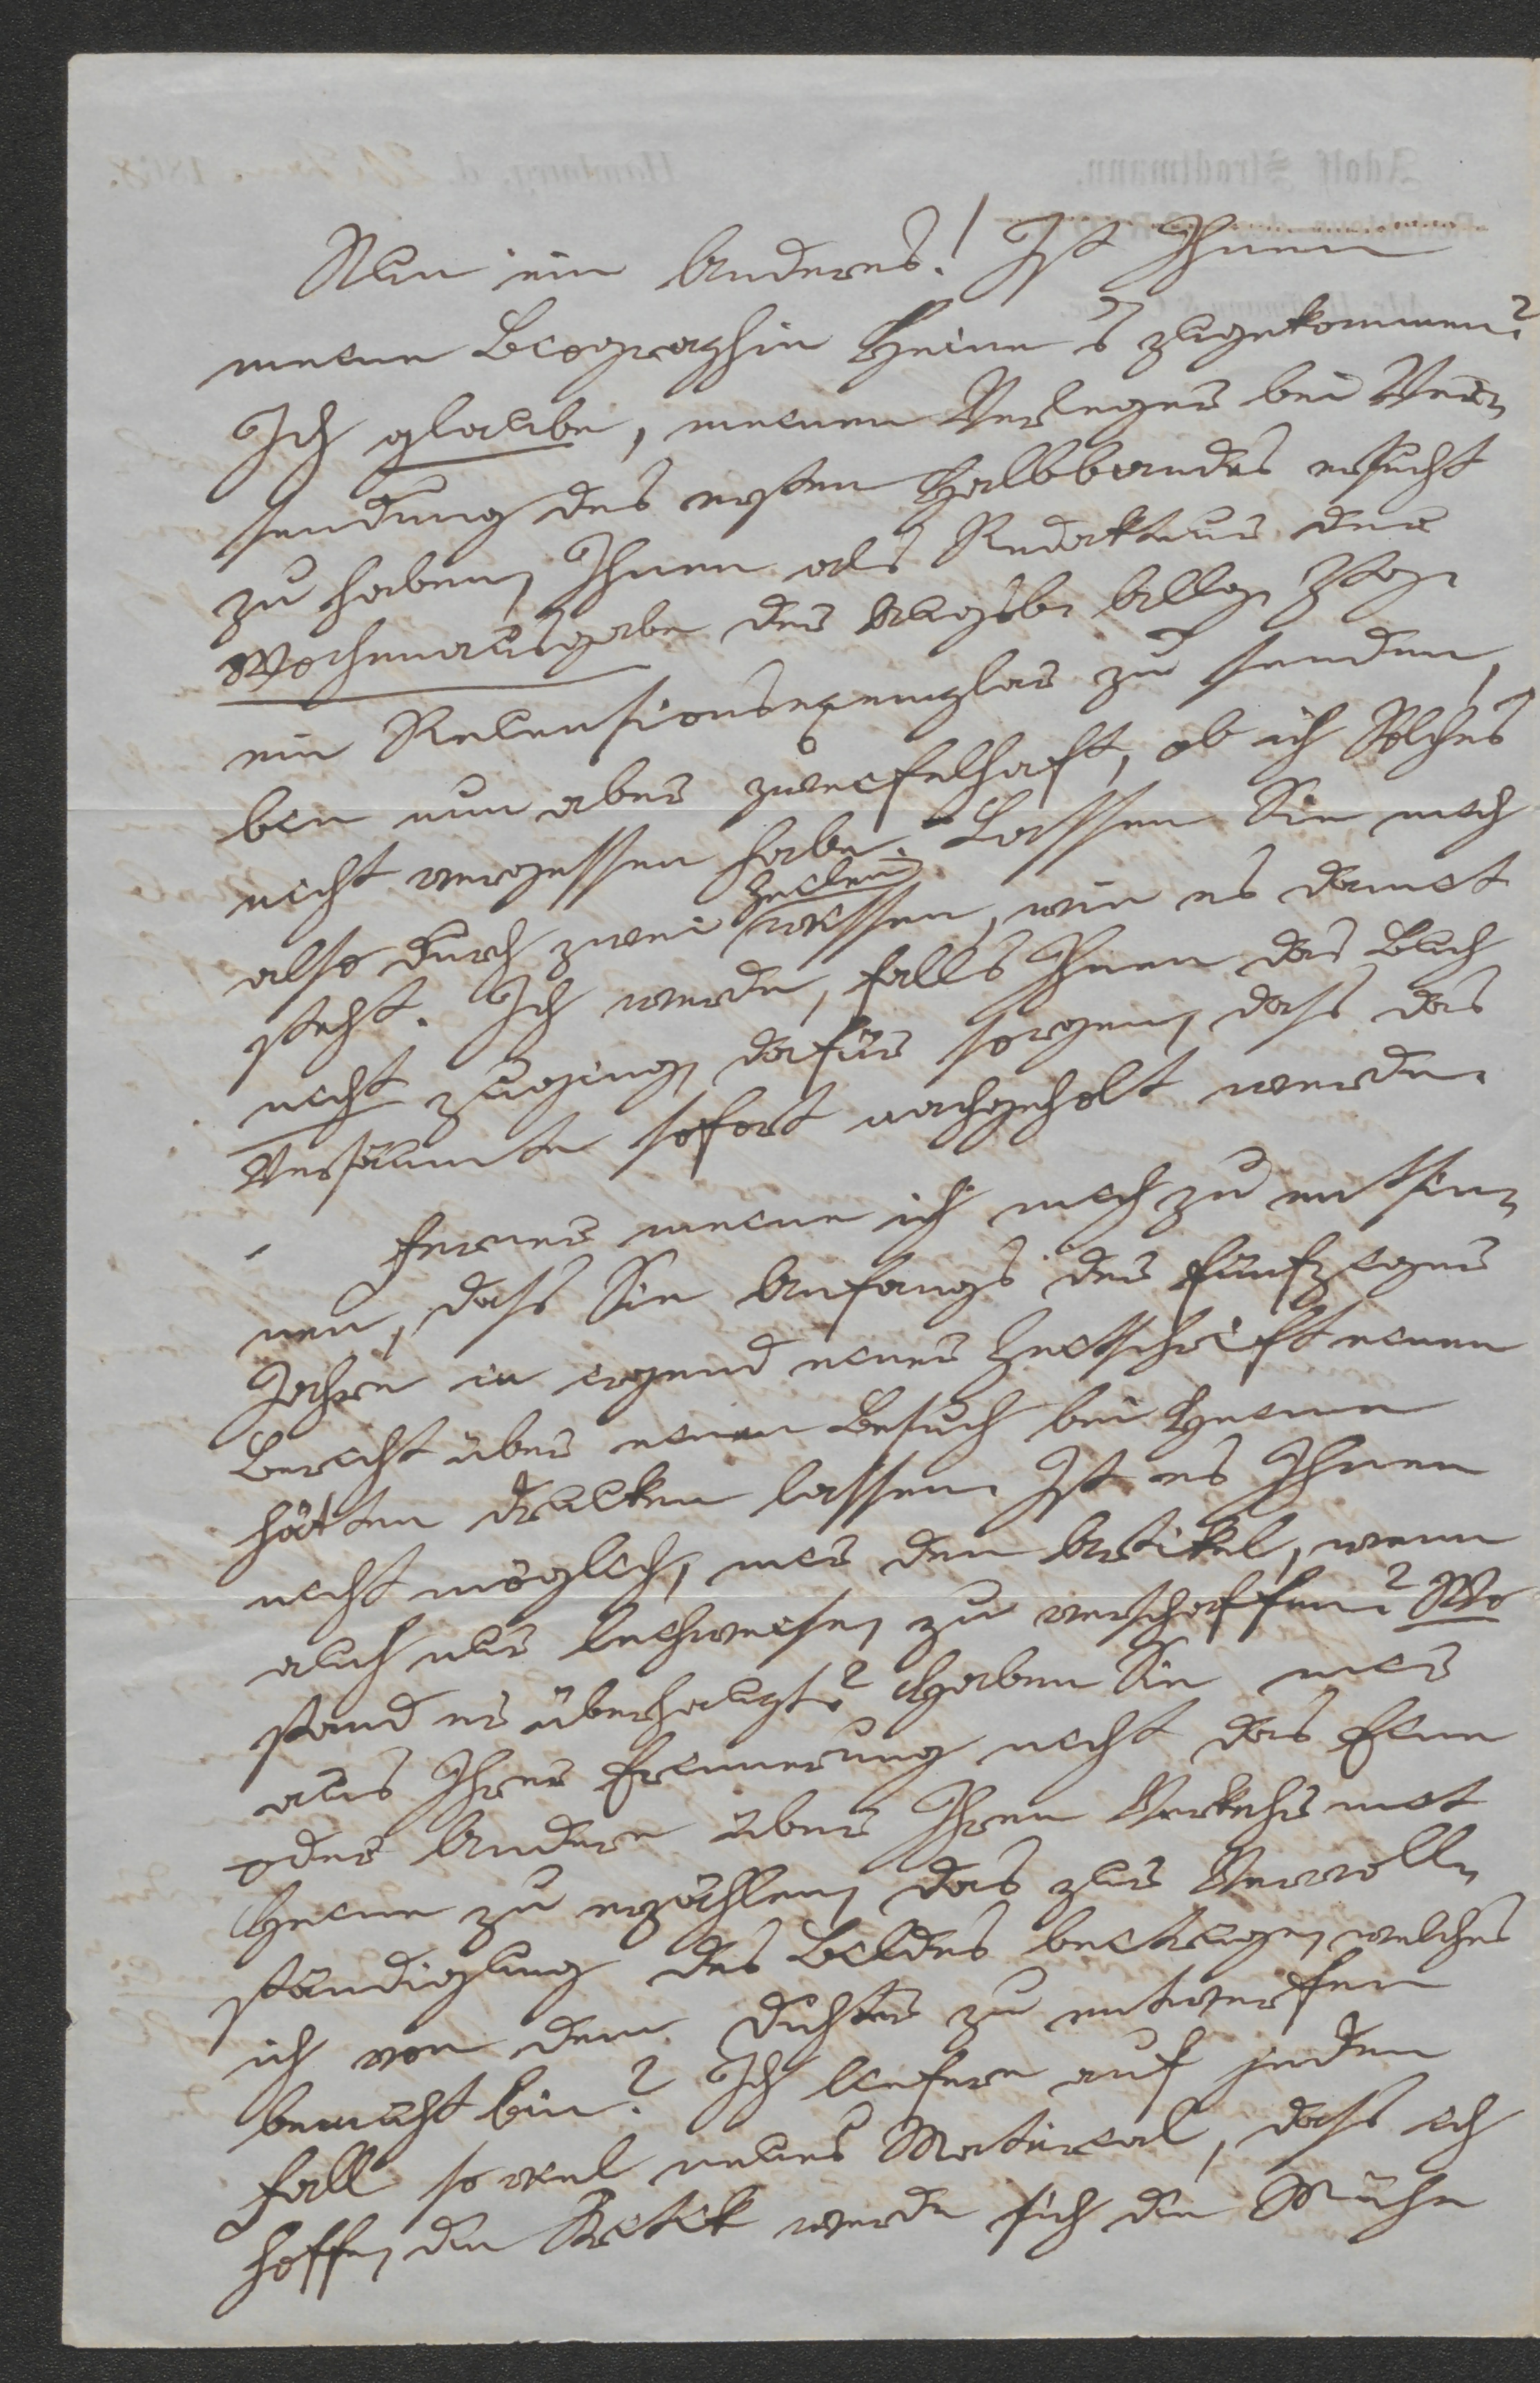 Nun ein Anderes! Ist Ihnen
meine Biographie Heine's zugekommen?
Ich glaube, meinen Verleger bei Ver-
sendung des ersten Halbbandes ersucht
zu haben, Ihnen als Redakteur der
Wochenausgabe der Augsb. Allg. Ztg.
ein Recensionsexemplar zu senden,
bin nun aber zweifelhaft, ob ich Solches
nicht vergessen habe. Lassen Sie mich
also durch zwei Zeilen wissen, wie es damit
steht. Ich werde, falls Ihnen das Buch
nicht zuging, dafür sorgen, dass das
Versäumte sofort nachgeholt werde.
Ferner meine ich mich zu entsin-
nen, dass Sie Anfangs der fünfziger
Jahre in irgend einer Zeitschrift einen
Bericht über einen Besuch bei Heine
hätten drucken lassen. Ist es Ihnen
nicht möglich, mir den Artikel, wenn
auch nur leihweise, zu verschaffen? Wo
stand er überhaupt? Haben Sie mir
aus Ihrer Erinnerung nicht das Eine
oder Andere über Ihren Verkehr mit
Heine zu erzählen, das zur Vervoll-
ständigung des Bildes beitrüge, welches
ich von dem Dichter zu entwerfen
bemüht bin? Ich liefere auf jeden
Fall so viel neues Material, dass ich
hoffe, die Kritik werde sich die Mühe